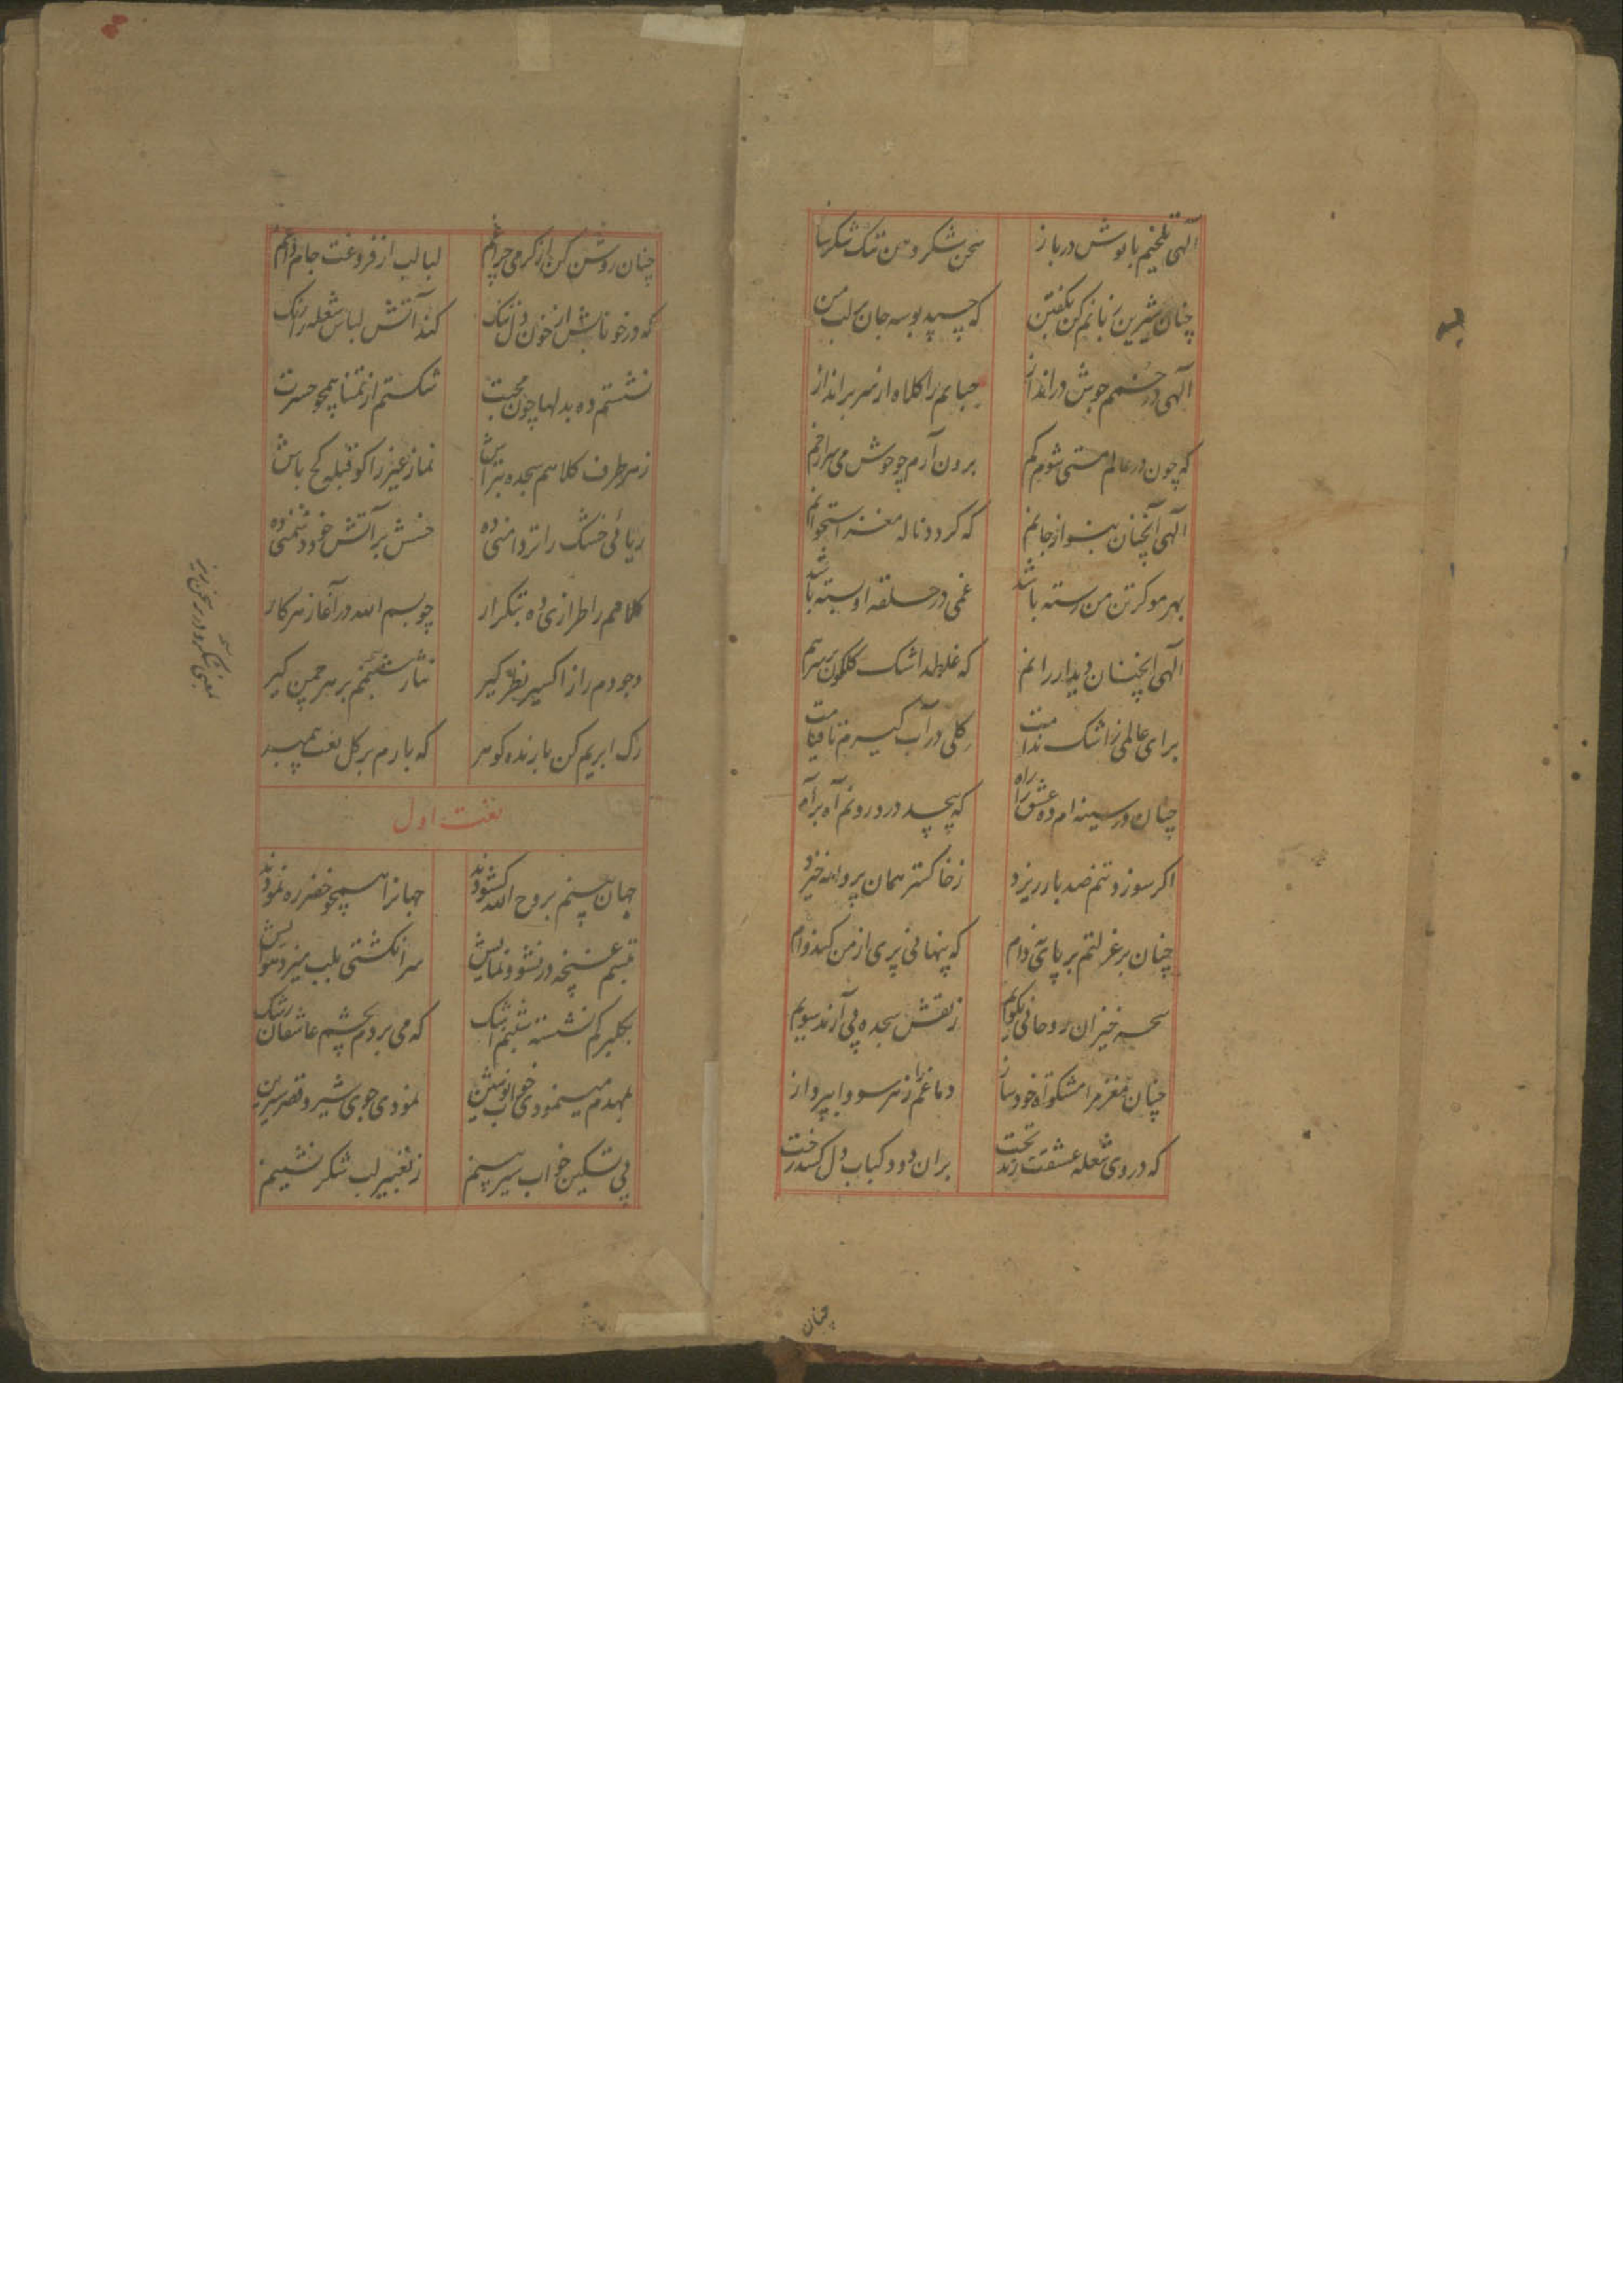 الهی تلخیم با نوش در باز سخن شکر دهن تنک شکر ساز
چنان شیرین زبانم کن بکفتن که چسپد بوسه جان بر لب من
الهی در خمم جوش در انداز حبابم را کلاه از سر بر انداز
که چون در عالم مستی شوم کم برون آرم چو جوش می سر از خم
الهی آنچنان بنواز جانم که کردد ناله مغز استخوانم
بهر مو کز تن من رسته باشد غمی در حلقه او بسته باشد
الهی آنچنان دیدار رانم که غلطد اشک کلکون بر سرم
برای عالمی ز اشک ندامت کلی در آب کیرم تا قیامت
چنان در سینه ام ده عشق را راه که پیچد در درونم آه بر آه
اکر سوزد تنم صد بار ریزد ز خاکستر همان پروانه خیزد
چنان بر عزلتم بر پای نه دام که پنهانی پری از من کند وام
سحر خیزان روحانی بکویم ز نقش سجده پی آرند سویم
چنان مغز مرا مشکواة خود ساز دماغم را ز هر سودا بپرداز
که در وی شعله عشقت زند تخت بران دود کباب دل کشد رخت
چنان
چنان روشن کن از کرمی چراغم لبالب از فروغت جام داغم
که در خونابش از خون دل تنک کند آتش لباس شعله را رنک
نشستم ده بدلها چون محبت شکستم از تمنا همچو حسرت
ز هر طرف کلاهم سجده بتراش نماز غیر را کو قبله کج باش
ریائی خشک را تر دامنی ده خسش بر آتش خود دشمنی ده
کلامم را طرازی ده بتکرار چو بسم الله در آغاز هر کار
وجودم را ز اکسیر نظر کیر نثار شبنمم بر هر چمن کیر
رک ابریم کن بارنده کوهر که بارم بر کل نعت پیمبر
نعت اول
جهان بینم بروح الله کشودند جهانرا همچو خضر ره نمودند
تبسم غنچه در نشو و نمایش سر انکشتی بلب میزد نوایش
بکلبرکم نشسته شبنم اشک که می بردم بچشم عاشقان رشک
بمهدم مینمودی خواب نوشین نمودی جوی شیر و قصر شیرین
پی تسکین خواب سیر بینم ز تعبیر لب شکر نشینم